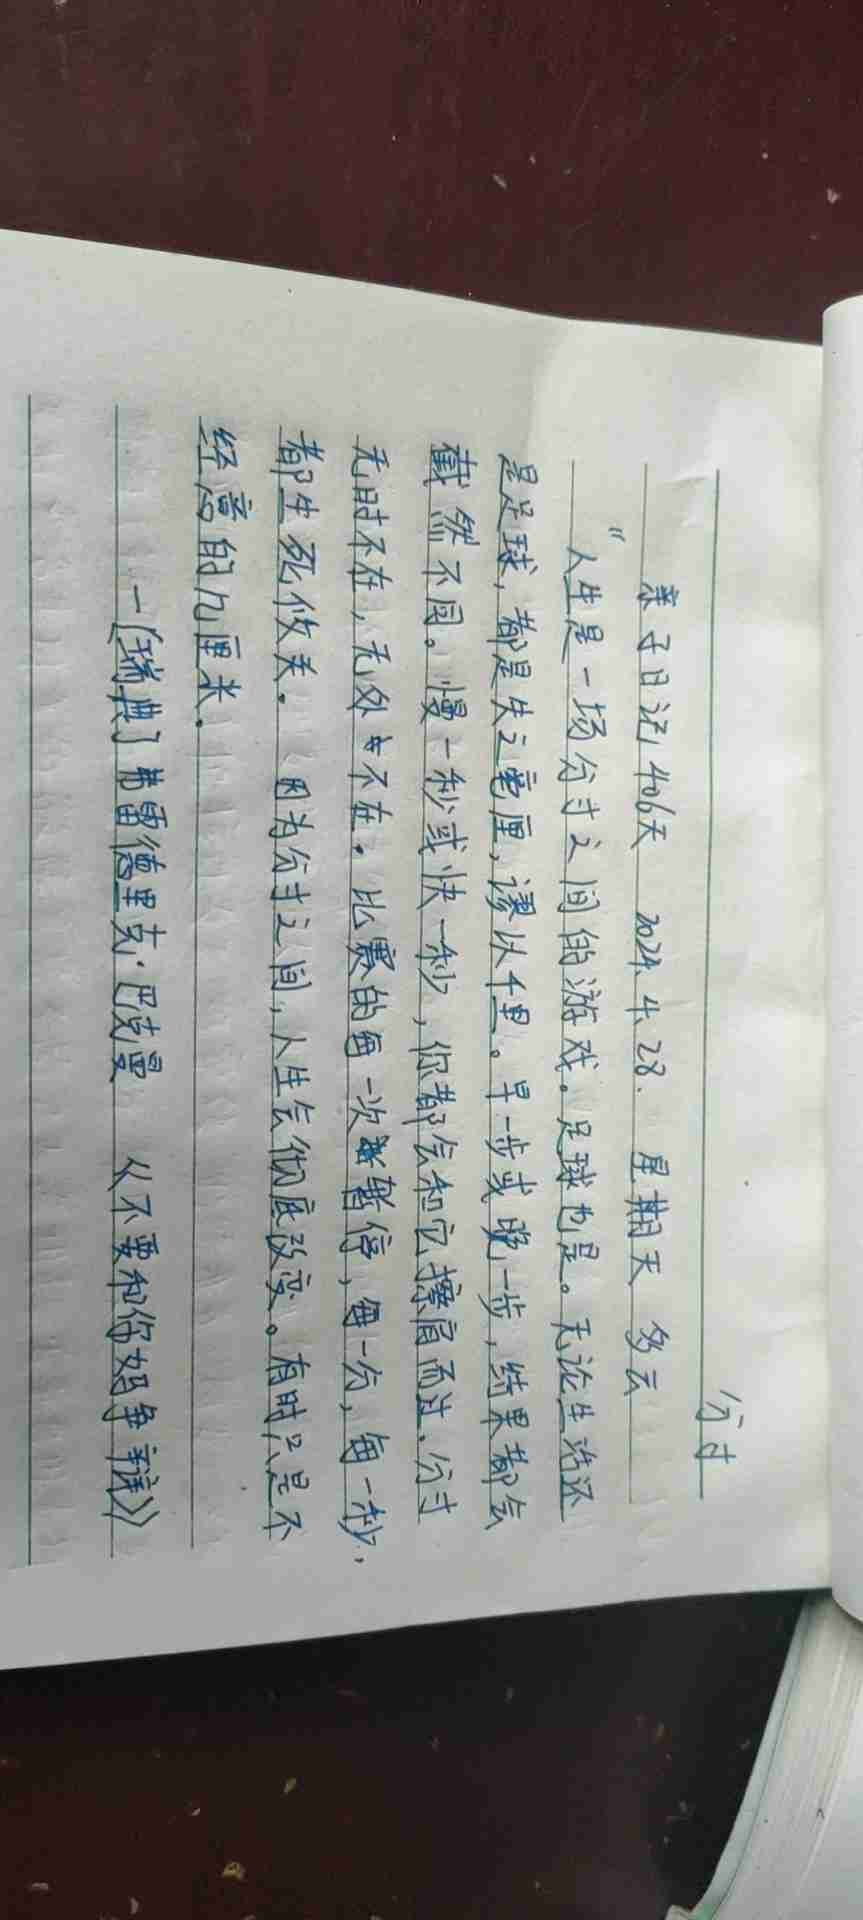 分寸
亲子日记406天 2024.4.28. 星期天 多云
“人生是一场分寸之间的游戏。足球也是。无论生活还
是足球，都是失之毫厘，谬以千里。早一步或晚一步，结果都会
截然不同。慢一秒或快一秒，你都会和它擦肩而过。分寸
无时不在，无处不在。比赛的每一次暂停，每一分，每一秒，
都生死攸关。因为分寸之间，人生会彻底改变。有时只是不
经意的几厘米。
—[瑞典]弗雷德里克·巴克曼 从不要和你妈争辩》